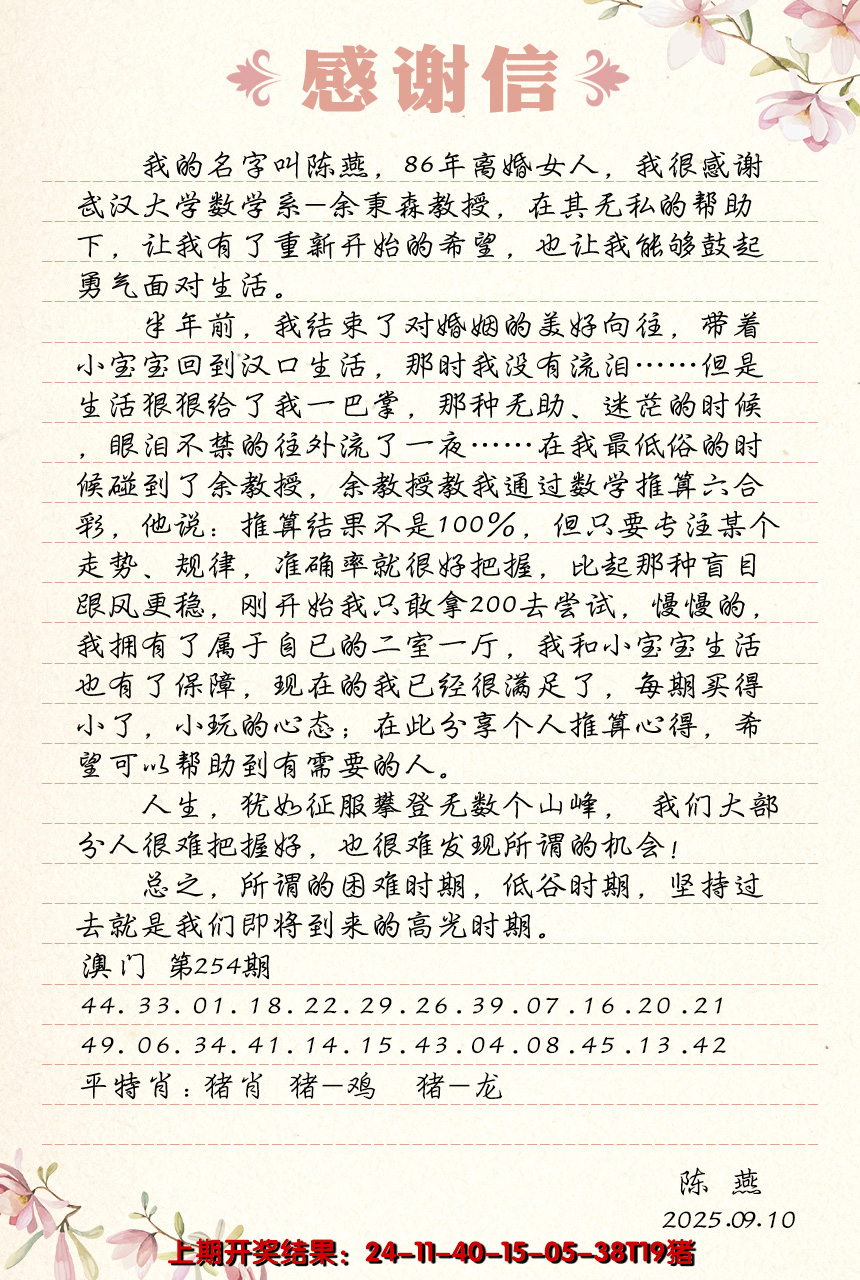 感谢信
我的名字叫陈燕，86年离婚女人，我很感谢
武汉大学数学系—余秉森教授，在其无私的帮助
下，让我有了重新开始的希望，也让我能够鼓起
勇气面对生活。
半年前，我结束了对婚姻的美好向往，带着
小宝宝回到汉口生活，那时我没有流泪……但是
生活狠狠给了我一巴掌，那种无助、迷茫的时候
，眼泪不禁的往外流了一夜……在我最低俗的时
候碰到了余教授，余教授教我通过数学推算六合
彩，他说：推算结果不是100%，但只要专注某个
走势、规律，准确率就很好把握，比起那种盲目
跟风更稳，刚开始我只敢拿200去尝试，慢慢的，
我拥有了属于自已的二室一厅，我和小宝宝生活
也有了保障，现在的我已经很满足了，每期买得
小了，小玩的心态；在此分享个人推算心得，希
望可以帮助到有需要的人。
人生，犹如征服攀登无数个山峰， 我们大部
分人很难把握好，也很难发现所谓的机会！
总之，所谓的困难时期，低谷时期，坚持过
去就是我们即将到来的高光时期。
澳门 第254期
44.33.01.18.22.29.26.39.07.16.20.21
49.06.34.41.14.15.43.04.08.45.13.42
平特肖：猪肖 猪—鸡 猪—龙
陈 燕
2025.09.10
上期开奖结果：24-11-40-15-05-38T19猪